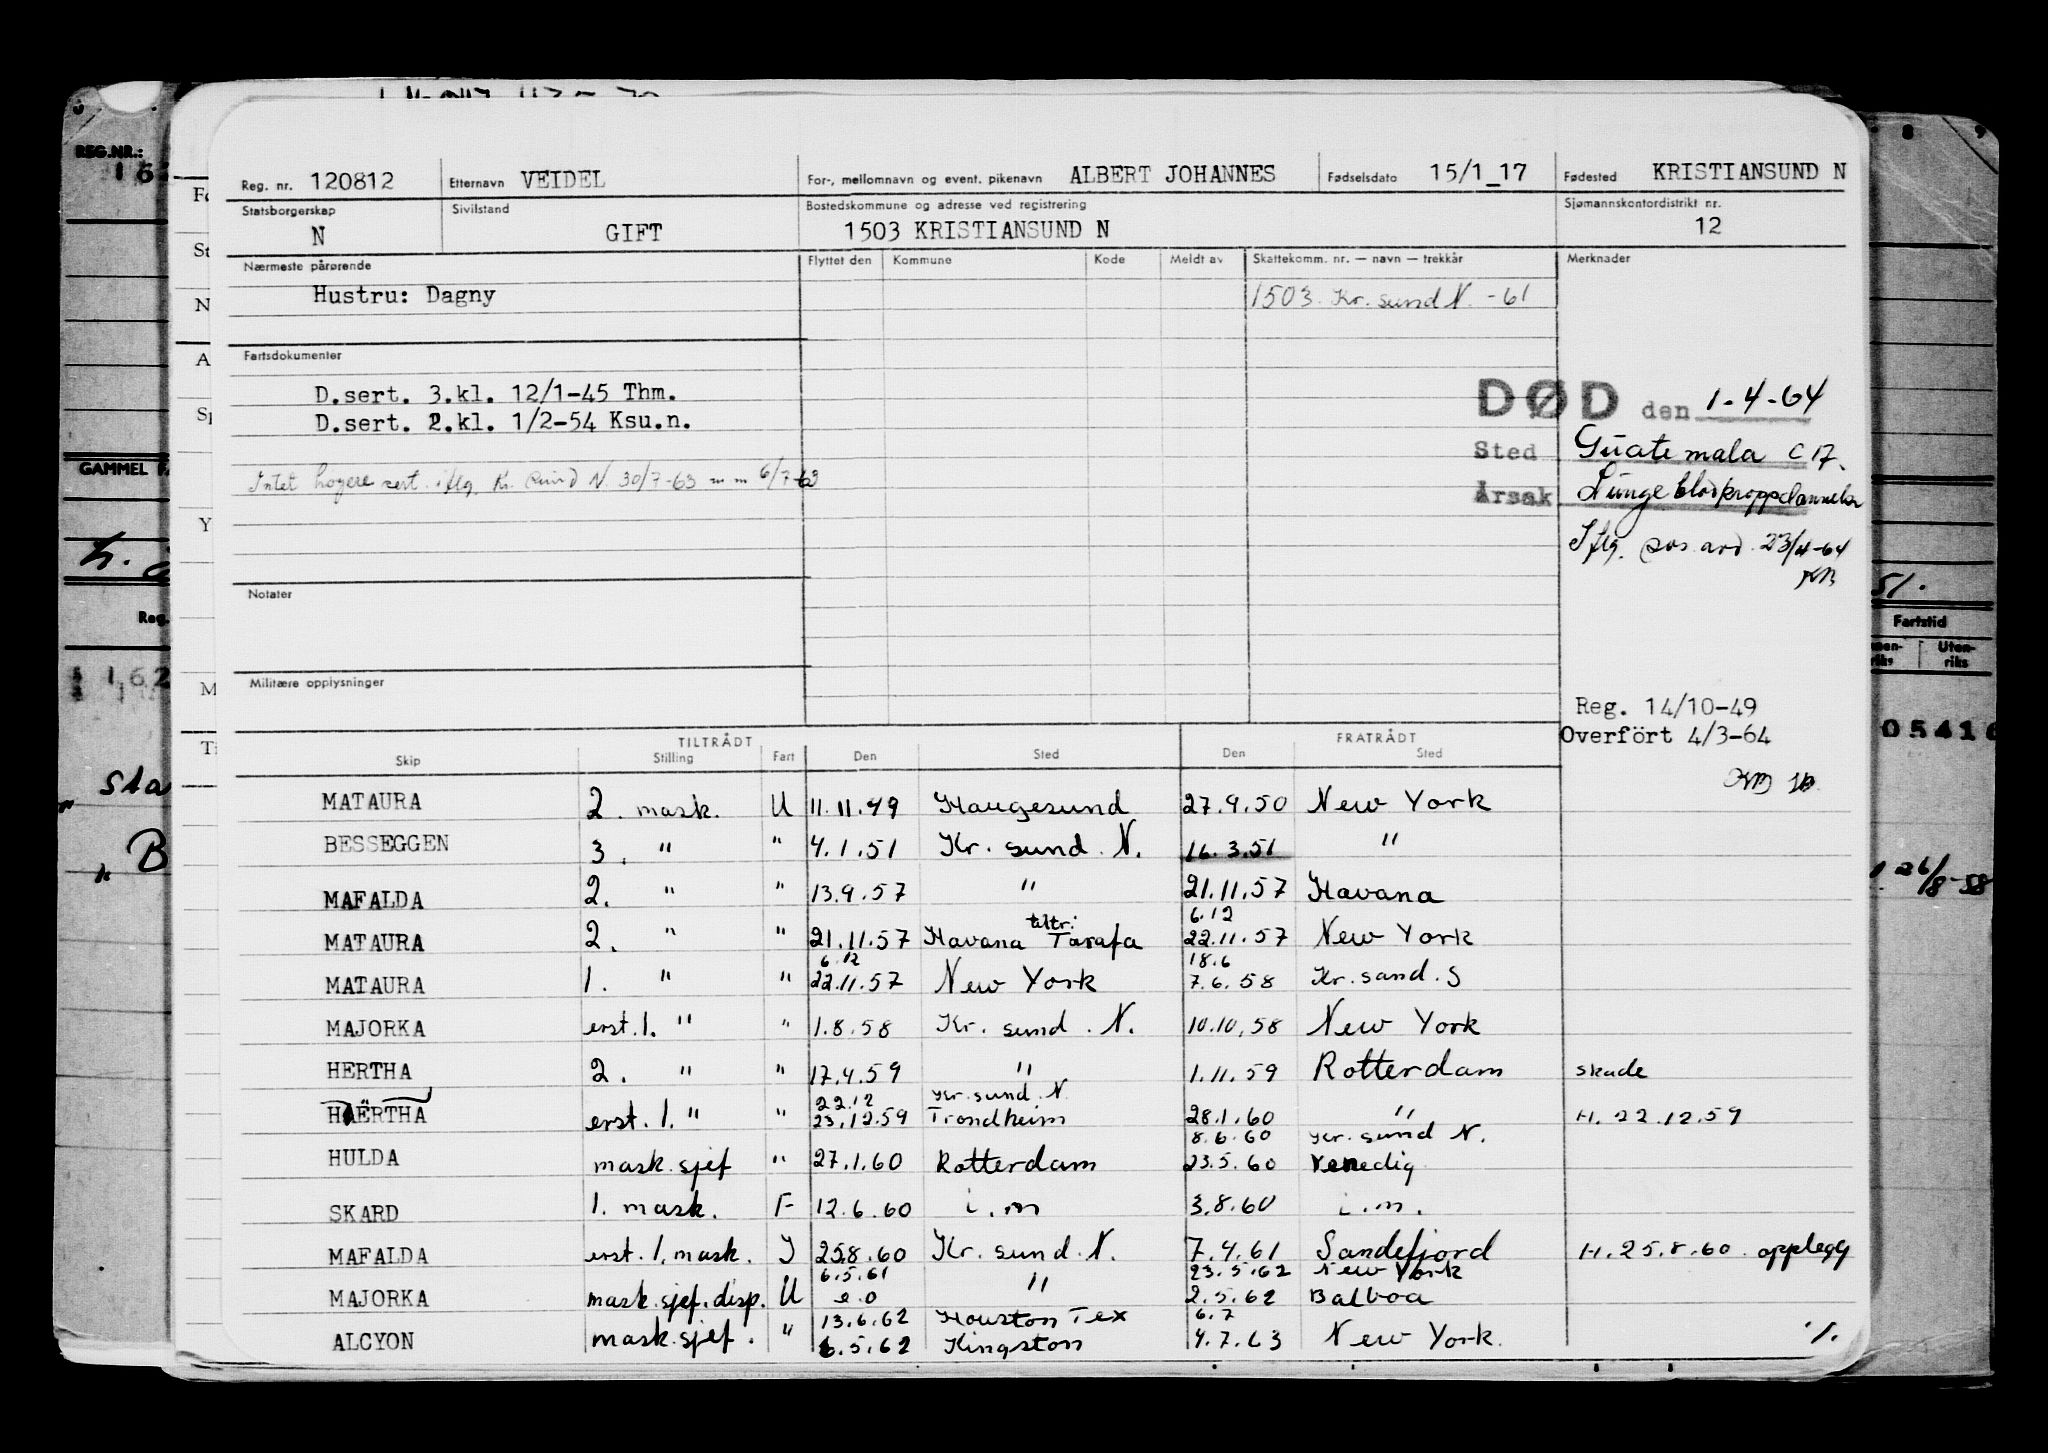 REG.NR.:
GAMMEL
Reg. nr. 120812 Etternavn VEIDEL For-, mellomnavn og event. pikenavn ALBERT JOHANNES Fødselsdato 15/1_17 Fødested KRISTIANSUND N
Statsborgerskap Sivilstand Bostedskommune og adresse ved registrering Sjømannskontordistrikt nr.
N GIFT 1503 KRISTIANSUND N 12
Nærmeste pårørende Flyttet den Kommune Kode Meldt av Skattekomm. nr. — navn — trekkår Merknader
Hustru: Dagny 1503 Kr. sund N. -61
Fartsdokumenter
D.sert. 3.kl. 12/1-45 Thm.
D.sert. 2.kl. 1/2-54 Ksu.n.
DØD den 1-4-64
Sted Guatemala C 17.
Intet høyere sert. iflg. Kr. sund N. 30/7-63 6/7-63
Årsak Lungeblodproppdannelse
Iflg. sos. avd. 23/4-64
KB
Notater
Militære opplysninger
Reg. 14/10-49
Overført 4/3-64
Fartstid
Uten-
riks
05416
26/8-58
TILTRÅDT FRATRÅDT
Skip Stilling Fart Den Sted Den Sted
MATAURA 2. mask. U 11.11.49 Haugesund 27.9.50 New York
BESSEGGEN 3. " " 4.1.51 Kr. sund. N. 16.3.51 "
MAFALDA 2. " " 13.9.57 " 21.11.57 Havana
tiltr. 6.12
MATAURA 2. " " 21.11.57 Havana Tarafa 22.11.57 New York
6.12 18.6
MATAURA 1. " " 22.11.57 New York 7.6.58 Kr. sand. S
MAJORKA erst. 1. " " 1.8.58 Kr. sund. N. 10.10.58 New York
HERTHA 2. " " 17.4.59 " 1.11.59 Rotterdam skade
22.12 Kr. sund. N.
HAËRTHA erst. 1. " " 23.12.59 Trondheim 28.1.60 " H. 22.12.59
8.6.60 Kr. sund N.
HULDA mask.sjef " 27.1.60 Rotterdam 23.5.60 Venedig
SKARD 1. mask. F 12.6.60 i.m 3.8.60 i.m.
MAFALDA erst. 1. mask. I 25.8.60 Kr. sund. N. 7.4.61 Sandefjord H. 25.8.60. opplegg
6.5.61 " 23.5.62 New York
MAJORKA mask.sjef.disp. U e.o 2.5.62 Balboa
13.6.62 Houston Tex 6.7
ALCYON mask.sjef. " 6.5.62 Kingston 4.7.63 New York.